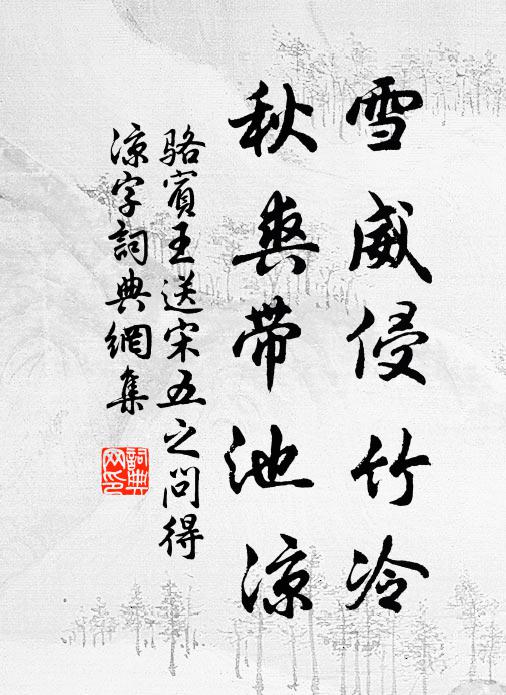 雪威侵竹冷
秋爽带池凉
骆宾王送宋五之问得
凉字词典网集
词典网印